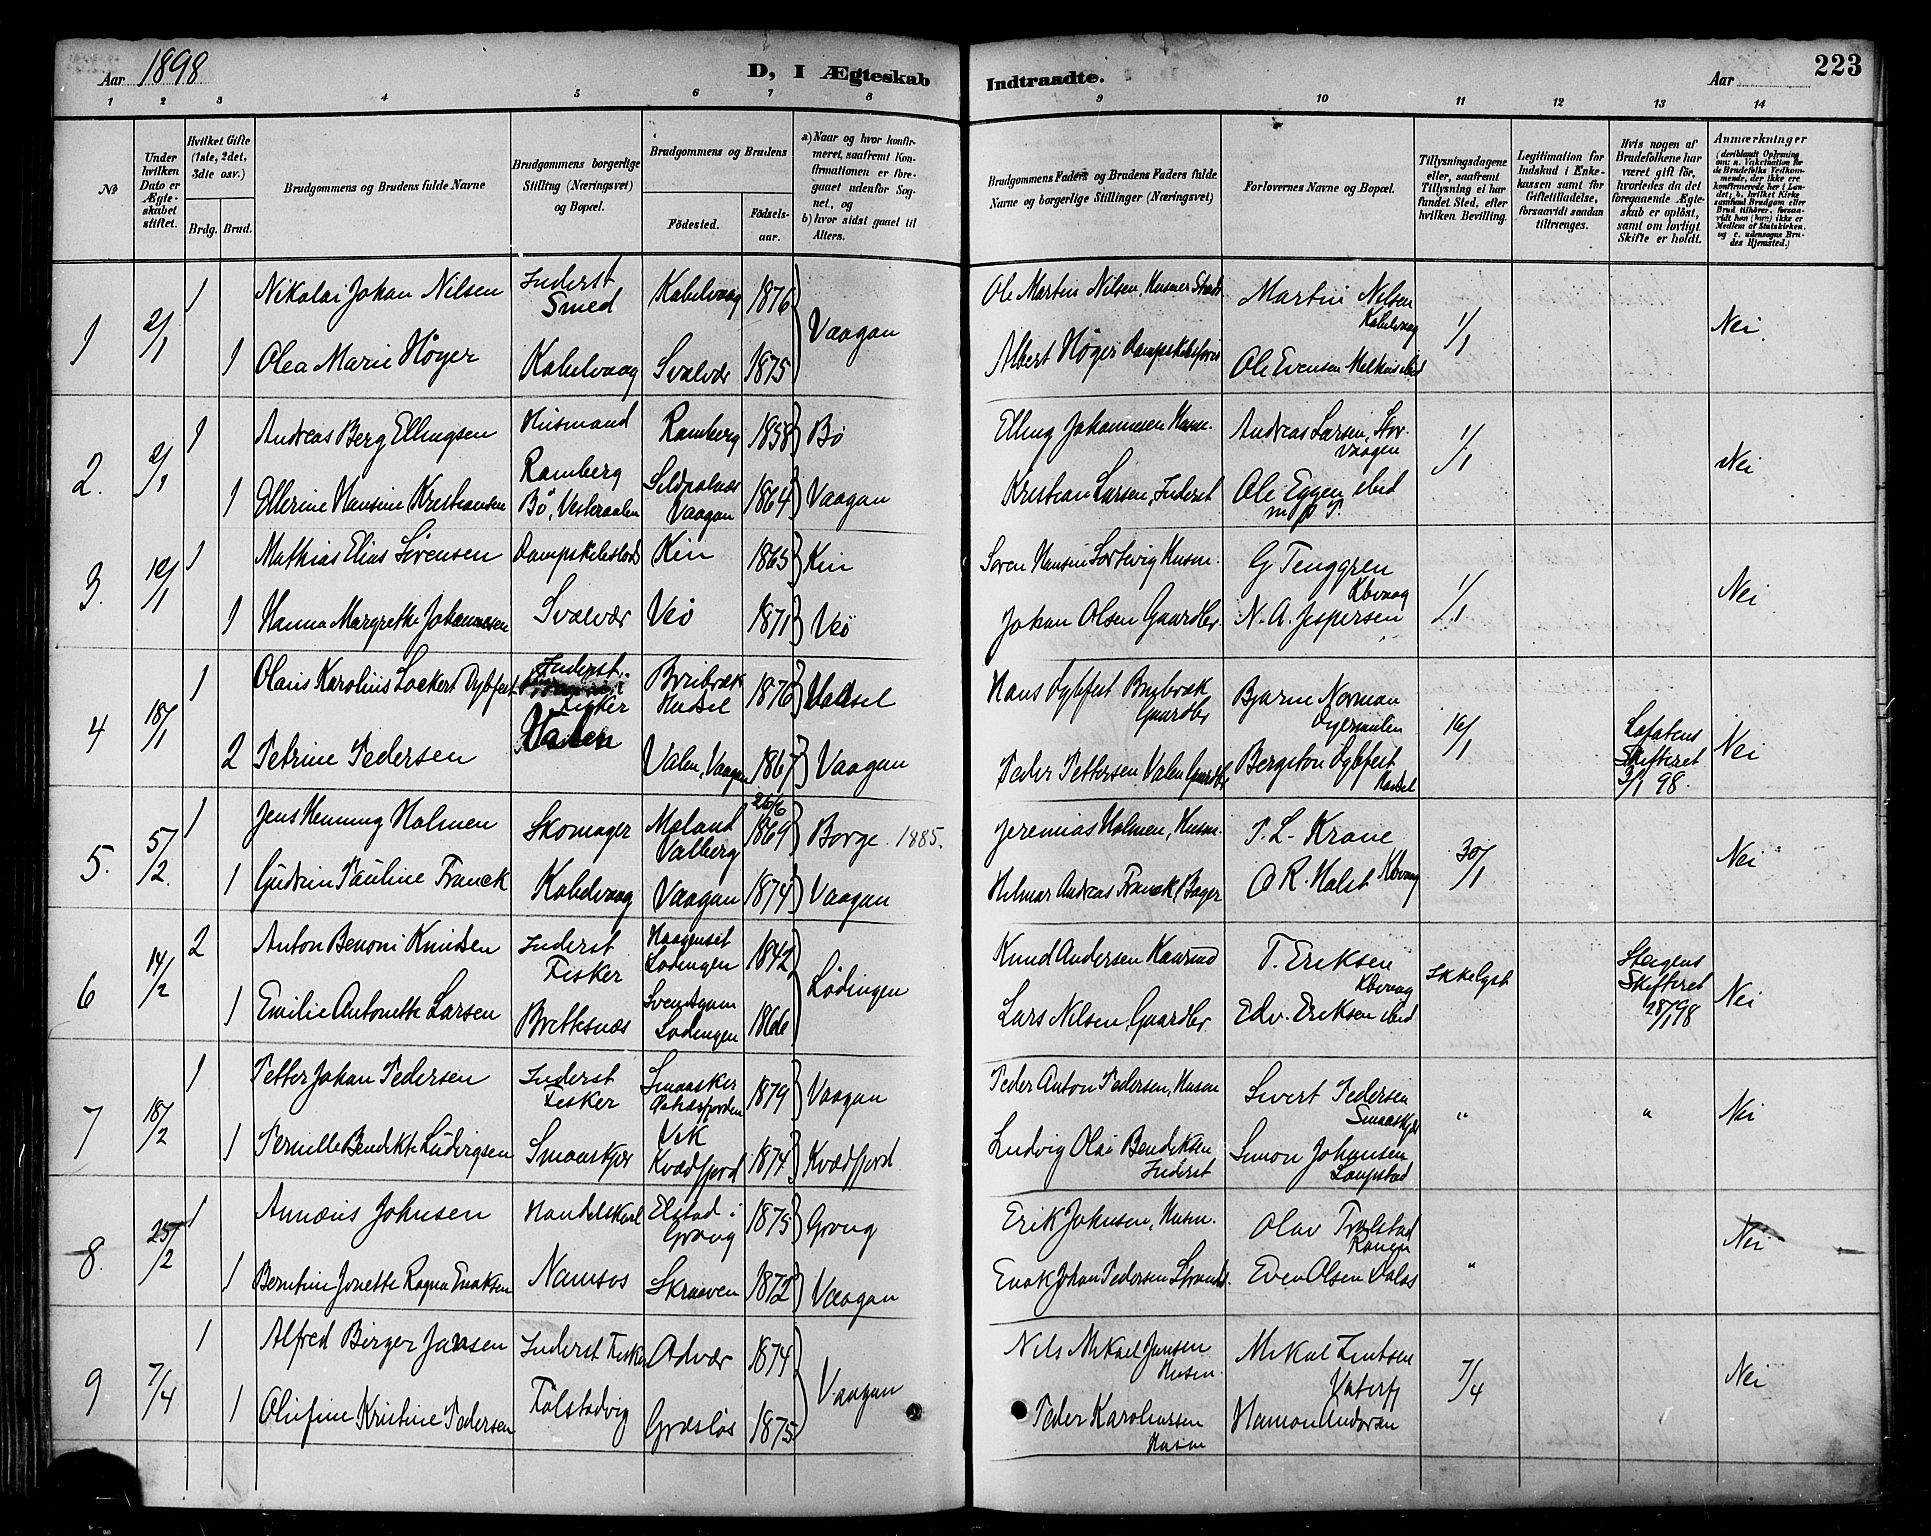 Aar 1898
D, I Ægteskab
Indtraadte.
Aar
223
1 2 3 4 5 6 7 8 9 10 11 12 13 14
No
Under hvilken Dato er Ægteskabet stiftet.
Hvilket Gifte (1ste, 2det, 3die osv.)
Brdg. Brud.
Brudgommens og Brudens fulde Navne
Brudgommens borgerlige Stilling (Næringsvei) og Bopæl.
Brudgommens og Brudens
Fødested.
Fødselsaar.
a) Naar og hvor konfirmeret, saafremt Konfirmationen er foregaaet udenfor Sognet, og
b) hvor sidst gaaet til Alters.
Brudgommens Faders og Brudens Faders fulde Navne og borgerlige Stillinger (Næringsvei)
Forlovernes Navne og Bopæl.
Tillysningsdagene eller, saafremt Tillysning ei har fundet Sted, efter hvilken Bevilling.
Legitimation for Indskud i Enkekassen samt for Giftetilladelse, forsaavidt saadan tiltrænges.
Hvis nogen af Brudefolkene har været gift før, hvorledes da det foregaaende Ægteskab er opløst, samt om lovligt Skifte er holdt.
Anmærkninger
(deriblandt Oplysning om: a. Vakcination for de Brudefolks Vedkommende, der ikke ere konfirmerede her i Landet; b. hvilket Kirkesamfund Brudgom eller Brud tilhører, forsaavidt han (hun) ikke er Medlem af Statskirken. og c. udensogns Brudes Hjemsted.)
1 2/1 1 Nikolai Johan Nilsen Inderst Smed Kabelvaag 1876 Vaagan Ole Martin Nilsen, Husmer Martin Nilsen Kabelvaag 1/1 Nei.
1 Olea Marie Höyer Kabelvaag Svolvær 1875 Albert Höyer Ole Evensen ibid
2. 2/1 1 Andreas Berg Ellingsen Husmand Ramberg 1858 Bö Elling Johannesen Husm. Andreas Larsen, Storvaagen 1/1 Nei
1 Ellerine Hansine Kristiansen Ramberg Bö, Vesteraalen Vaagan 1864 Vaagan Kristian Larsen, Inderst Ole Eggen ibid
3. 12/1 1 Mathias Elias Sörensen Kin 1865 Kin Sören Hansen Husm. G Tenggren Kbvaag 1/1 Nei
1 Hanna Margrethe Johannesen Svolvær Veö 1871 Veö Johan Olsen Gaardbr. N. A. Jespersen
4 18/1 1 Olaus Karolius Lockert Dybfest Inderst Fisker Hadsel 1876 Hadsel Hans Dybfest Gaardbr Bjarne Norman Digermulen 16/1 Nei
2 Petrine Pedersen Valen Valen, Vaagan 1867 Vaagan Peder Pettersen Valen Gaardbr Bergiton Dybfest Hadsel Lofotens Skifteret 3/1 98.
5. 5/2. 1 Jens Henning Holmen Skomager Moland Valberg 26/6 1869 Borge 1885. Jeremias Holmen, Husm. P. L. Krane 30/1 Nei
1 Gudrun Pauline Franck Kabelvaag Vaagan 1874 Vaagan Hilmar Andreas Franck (Bager O. R. Holst Kbvaag
6 14/2 2 Anton Benoni Knudsen Inderst Fisker Lödingen 1842 Lödingen Knud Andersen T. Eriksen Kbvaag Ikke lyst Steigens Skifteret 28/1 98 Nei
1 Emilie Antonette Larsen Brettesnæs Lödingen 1866 Lars Nilsen, Gaardbr. Edv. Eriksen ibid
7 18/2 1 Petter Johan Pedersen Inderst Fisker 1879 Vaagan Peder Anton Pedersen, Husm Sivert Pedersen Smaaskjær " " Nei
1 Pernille Bendikte Ludvigsen Smaaskjær Vik Kvædfjord 1874 Kvædfjord Ludvig Olai Bendiksen Inderst Simon Johansen
8. 25/2 1 Annæus Johnsen Handelskarl Elstad i Grong 1875 Grong Erik Johnsen, Husm. Olav Ranem " Nei
1 Berntine Jonette Ragna Enoksen Namsos Skraaven 1872 Vaagan Enok Johan Pedersen Even Olsen
9 7/4 1 Alfred Birger Jansen Inderst Fisker 1874 Vaagan Nils Mikael Jansen Husm. Mikal 7/4 Nei
1 Olufine Kristine Pedersen Falstadvig 1875 Peder Karoliussen Husm